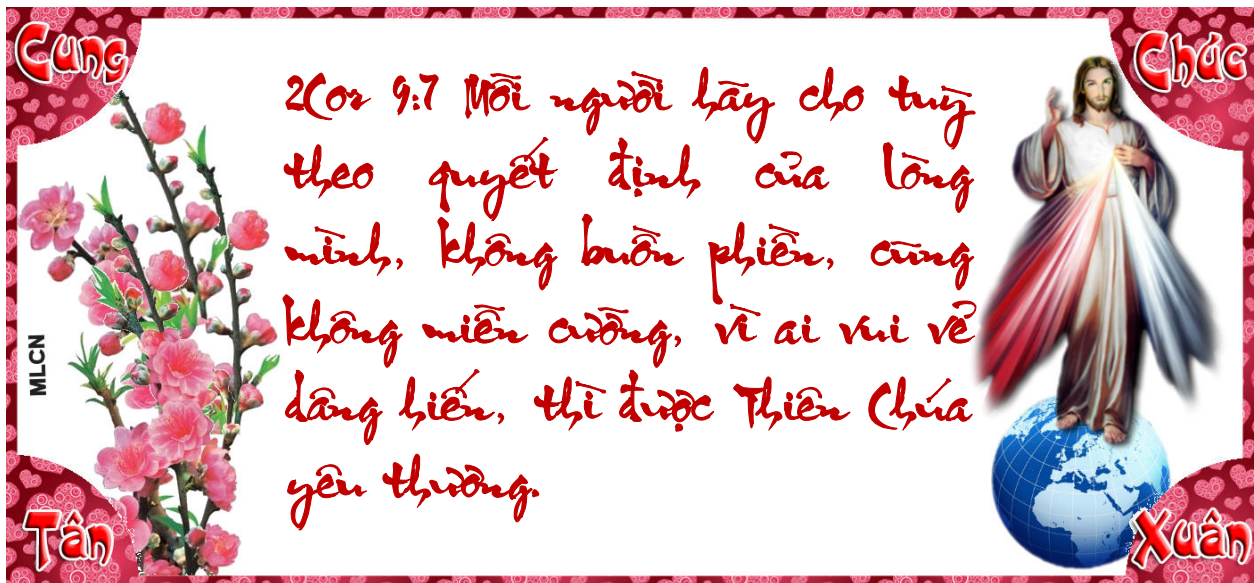 Cung
Chúc
2Cor 9:7 Mỗi người hãy cho tuỳ
theo quyết định của lòng
mình, không buồn phiền, cũng
không miễn cưỡng, vì ai vui vẻ
dâng hiến, thì được Thiên Chúa
yêu thương.
MLCN
Tân
Xuân